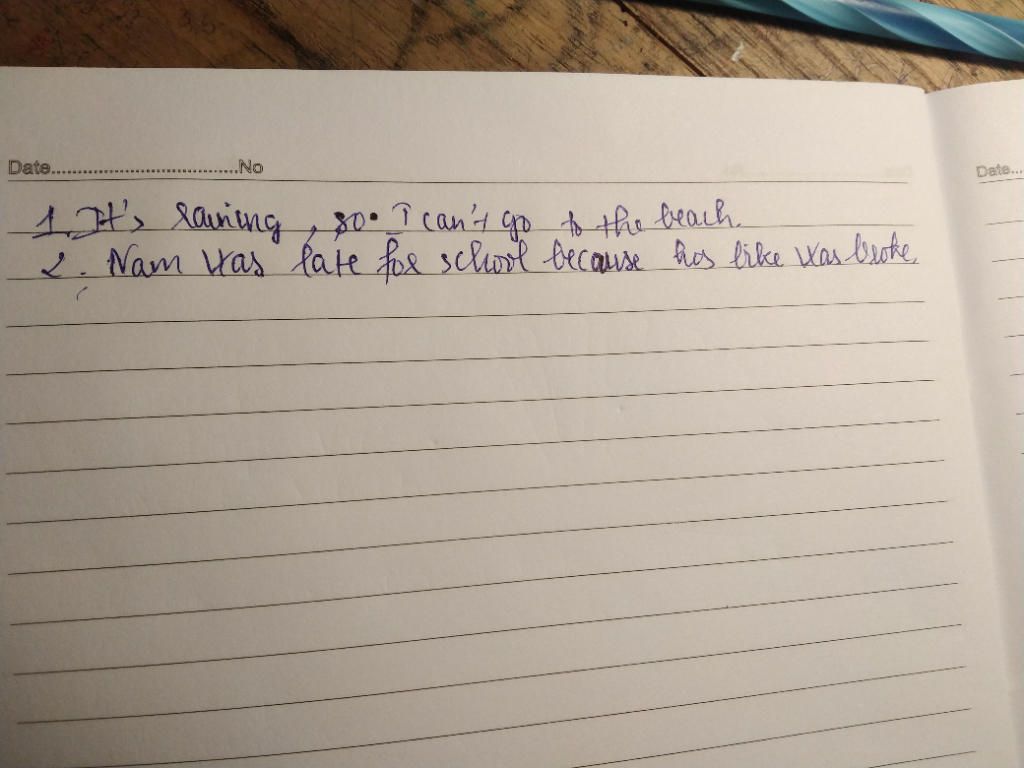 Date.....................................No
Date...
1. It's raining, so I can't go to the beach.
2. Nam was late for school because his bike was broke.